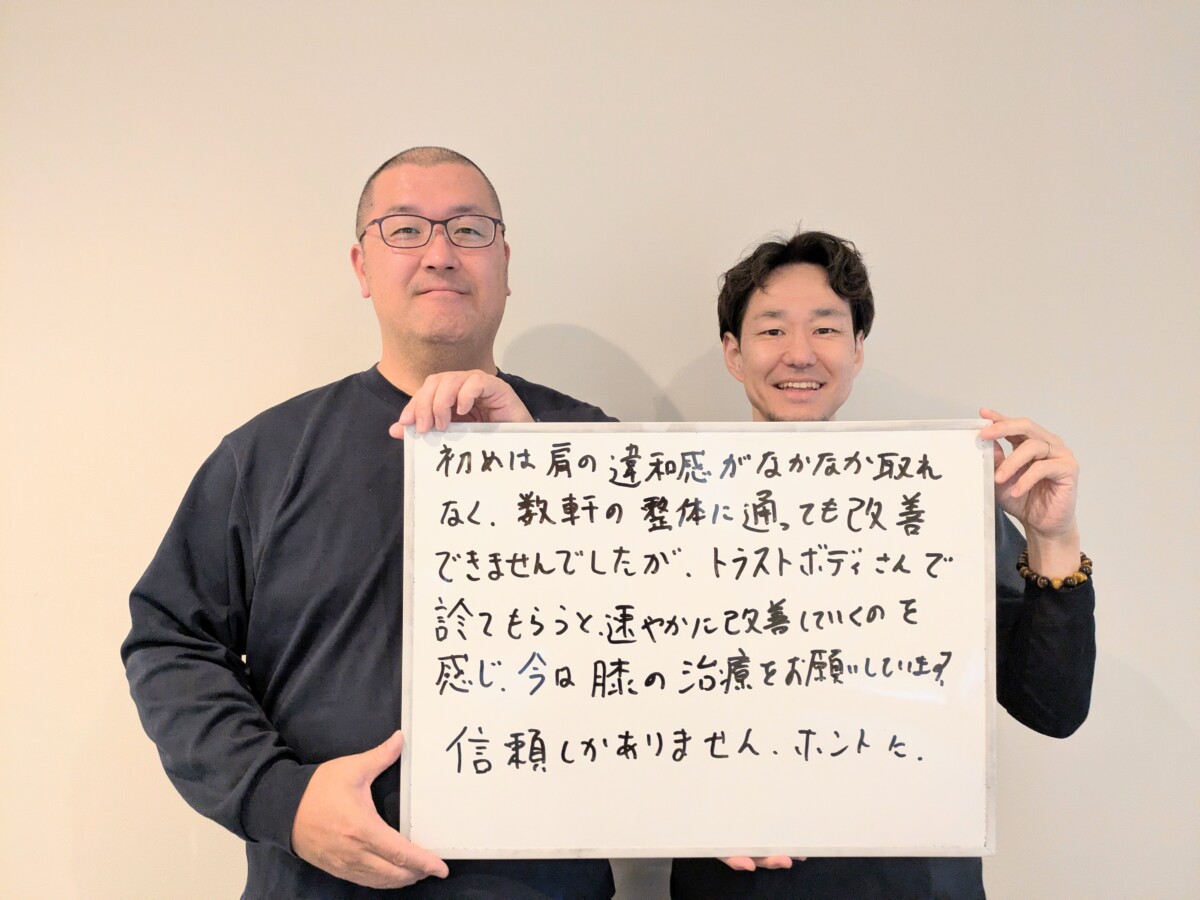 初めは肩の違和感がなかなか取れ
なく、数軒の整体に通っても改善
できませんでしたが、トラストボディさんで
診てもらうと、速やかに改善していくのを
感じ、今は膝の治療をお願いしています。
信頼しかありません、ホントに。